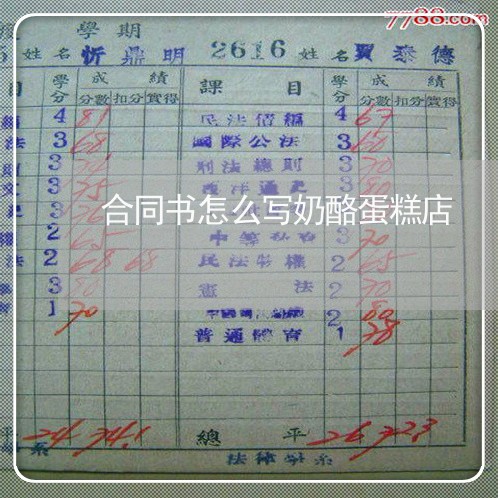 7788.com
學期
5 姓名 忻鼎明 2616 姓名 賈泰德
目 學分 成績 課目 學分 成績
分數 扣分 實得 分數 扣分 實得
4 81 民法債編 4 67
法 3 68 國際公法 3 60
3 刑法總則 3 70
3 75 西洋通史 3 80
合同书怎么写奶酪蛋糕店
2 65 3 70
法 2 68 68 民法物權 2 65
3 80 憲法 2 70
1 70 2 80
普通體育 1 78
平 24 74.1 總平 26 72.3
系 法律學系